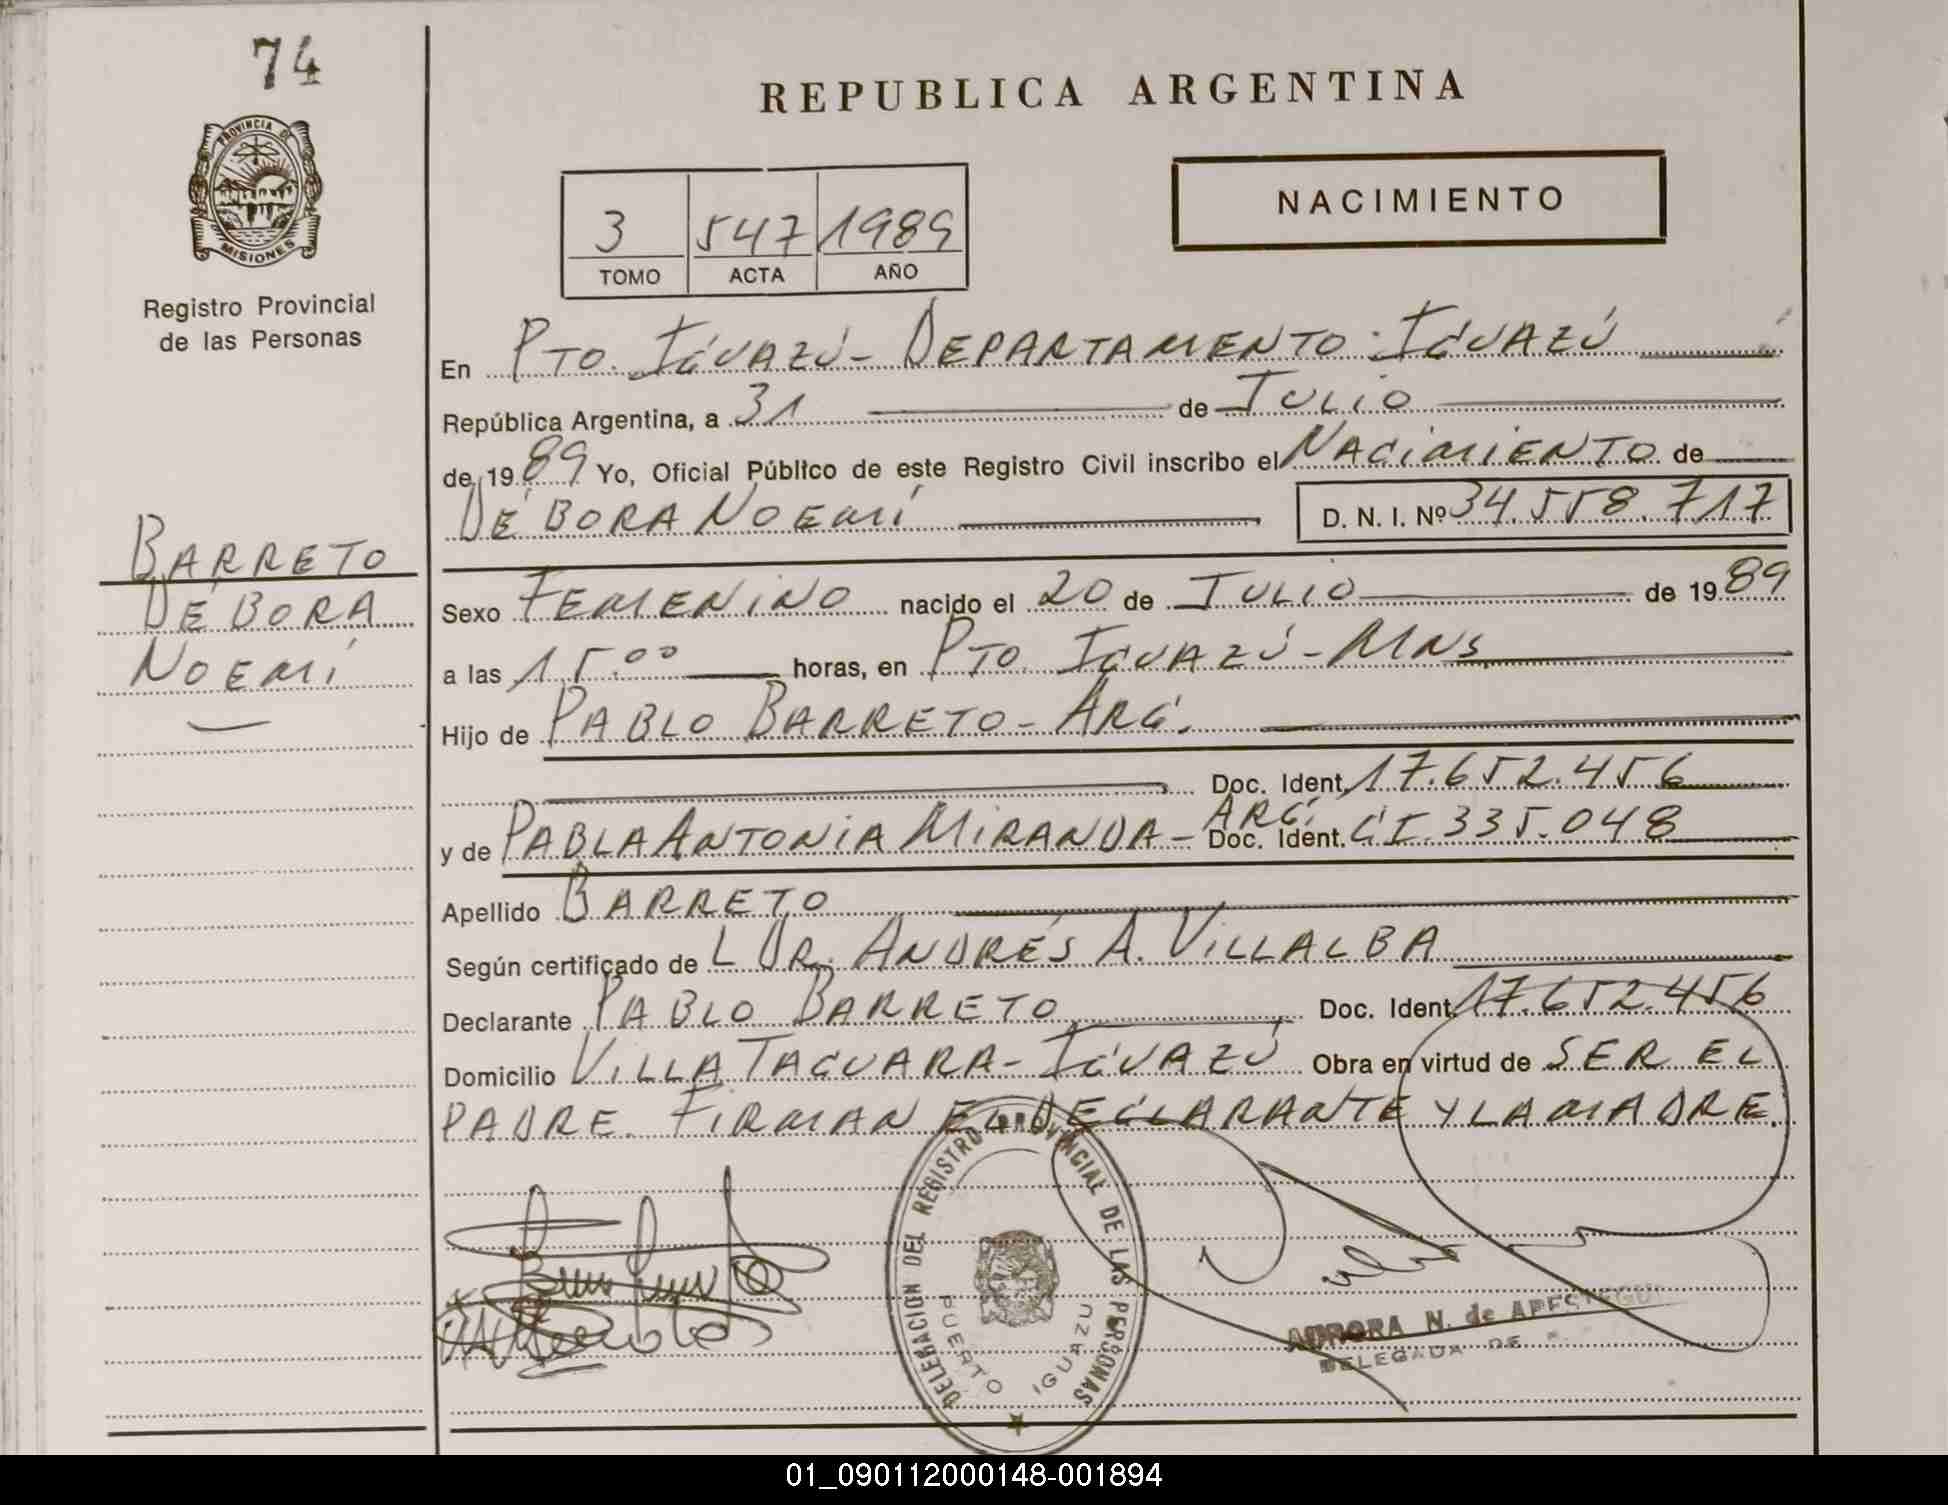 74
REPUBLICA ARGENTINA
PROVINCIA DE
MISIONES
Registro Provincial
de las Personas
NACIMIENTO
3 547 1989
TOMO ACTA AÑO
En PTO. IGUAZÚ - DEPARTAMENTO: IGUAZÚ
República Argentina, a 31 de JULIO
de 1989 Yo, Oficial Público de este Registro Civil inscribo el NACIMIENTO de
DÉBORA NOEMÍ D. N. I. Nº 34.558.717
BARRETO
DÉBORA
NOEMÍ
Sexo FEMENINO nacido el 20 de JULIO de 1989
a las 15.00 horas, en PTO. IGUAZÚ - MNS
Hijo de PABLO BARRETO - ARG.
Doc. Ident. 17.652.456
y de PABLA ANTONIA MIRANDA - ARG. Doc. Ident. C.I. 335.048
Apellido BARRETO
Según certificado de L DR. ANDRÉS A. VILLALBA
Declarante PABLO BARRETO Doc. Ident. 17.652.456
Domicilio VILLA TACUARA - IGUAZÚ Obra en virtud de SER EL
PADRE. FIRMAN EL DECLARANTE Y LA MADRE.
DELEGACION DEL REGISTRO PROVINCIAL DE LAS PERSONAS
PUERTO IGUAZU
AURORA N. de APESTEGUI
DELEGADA DE
01_090112000148-001894